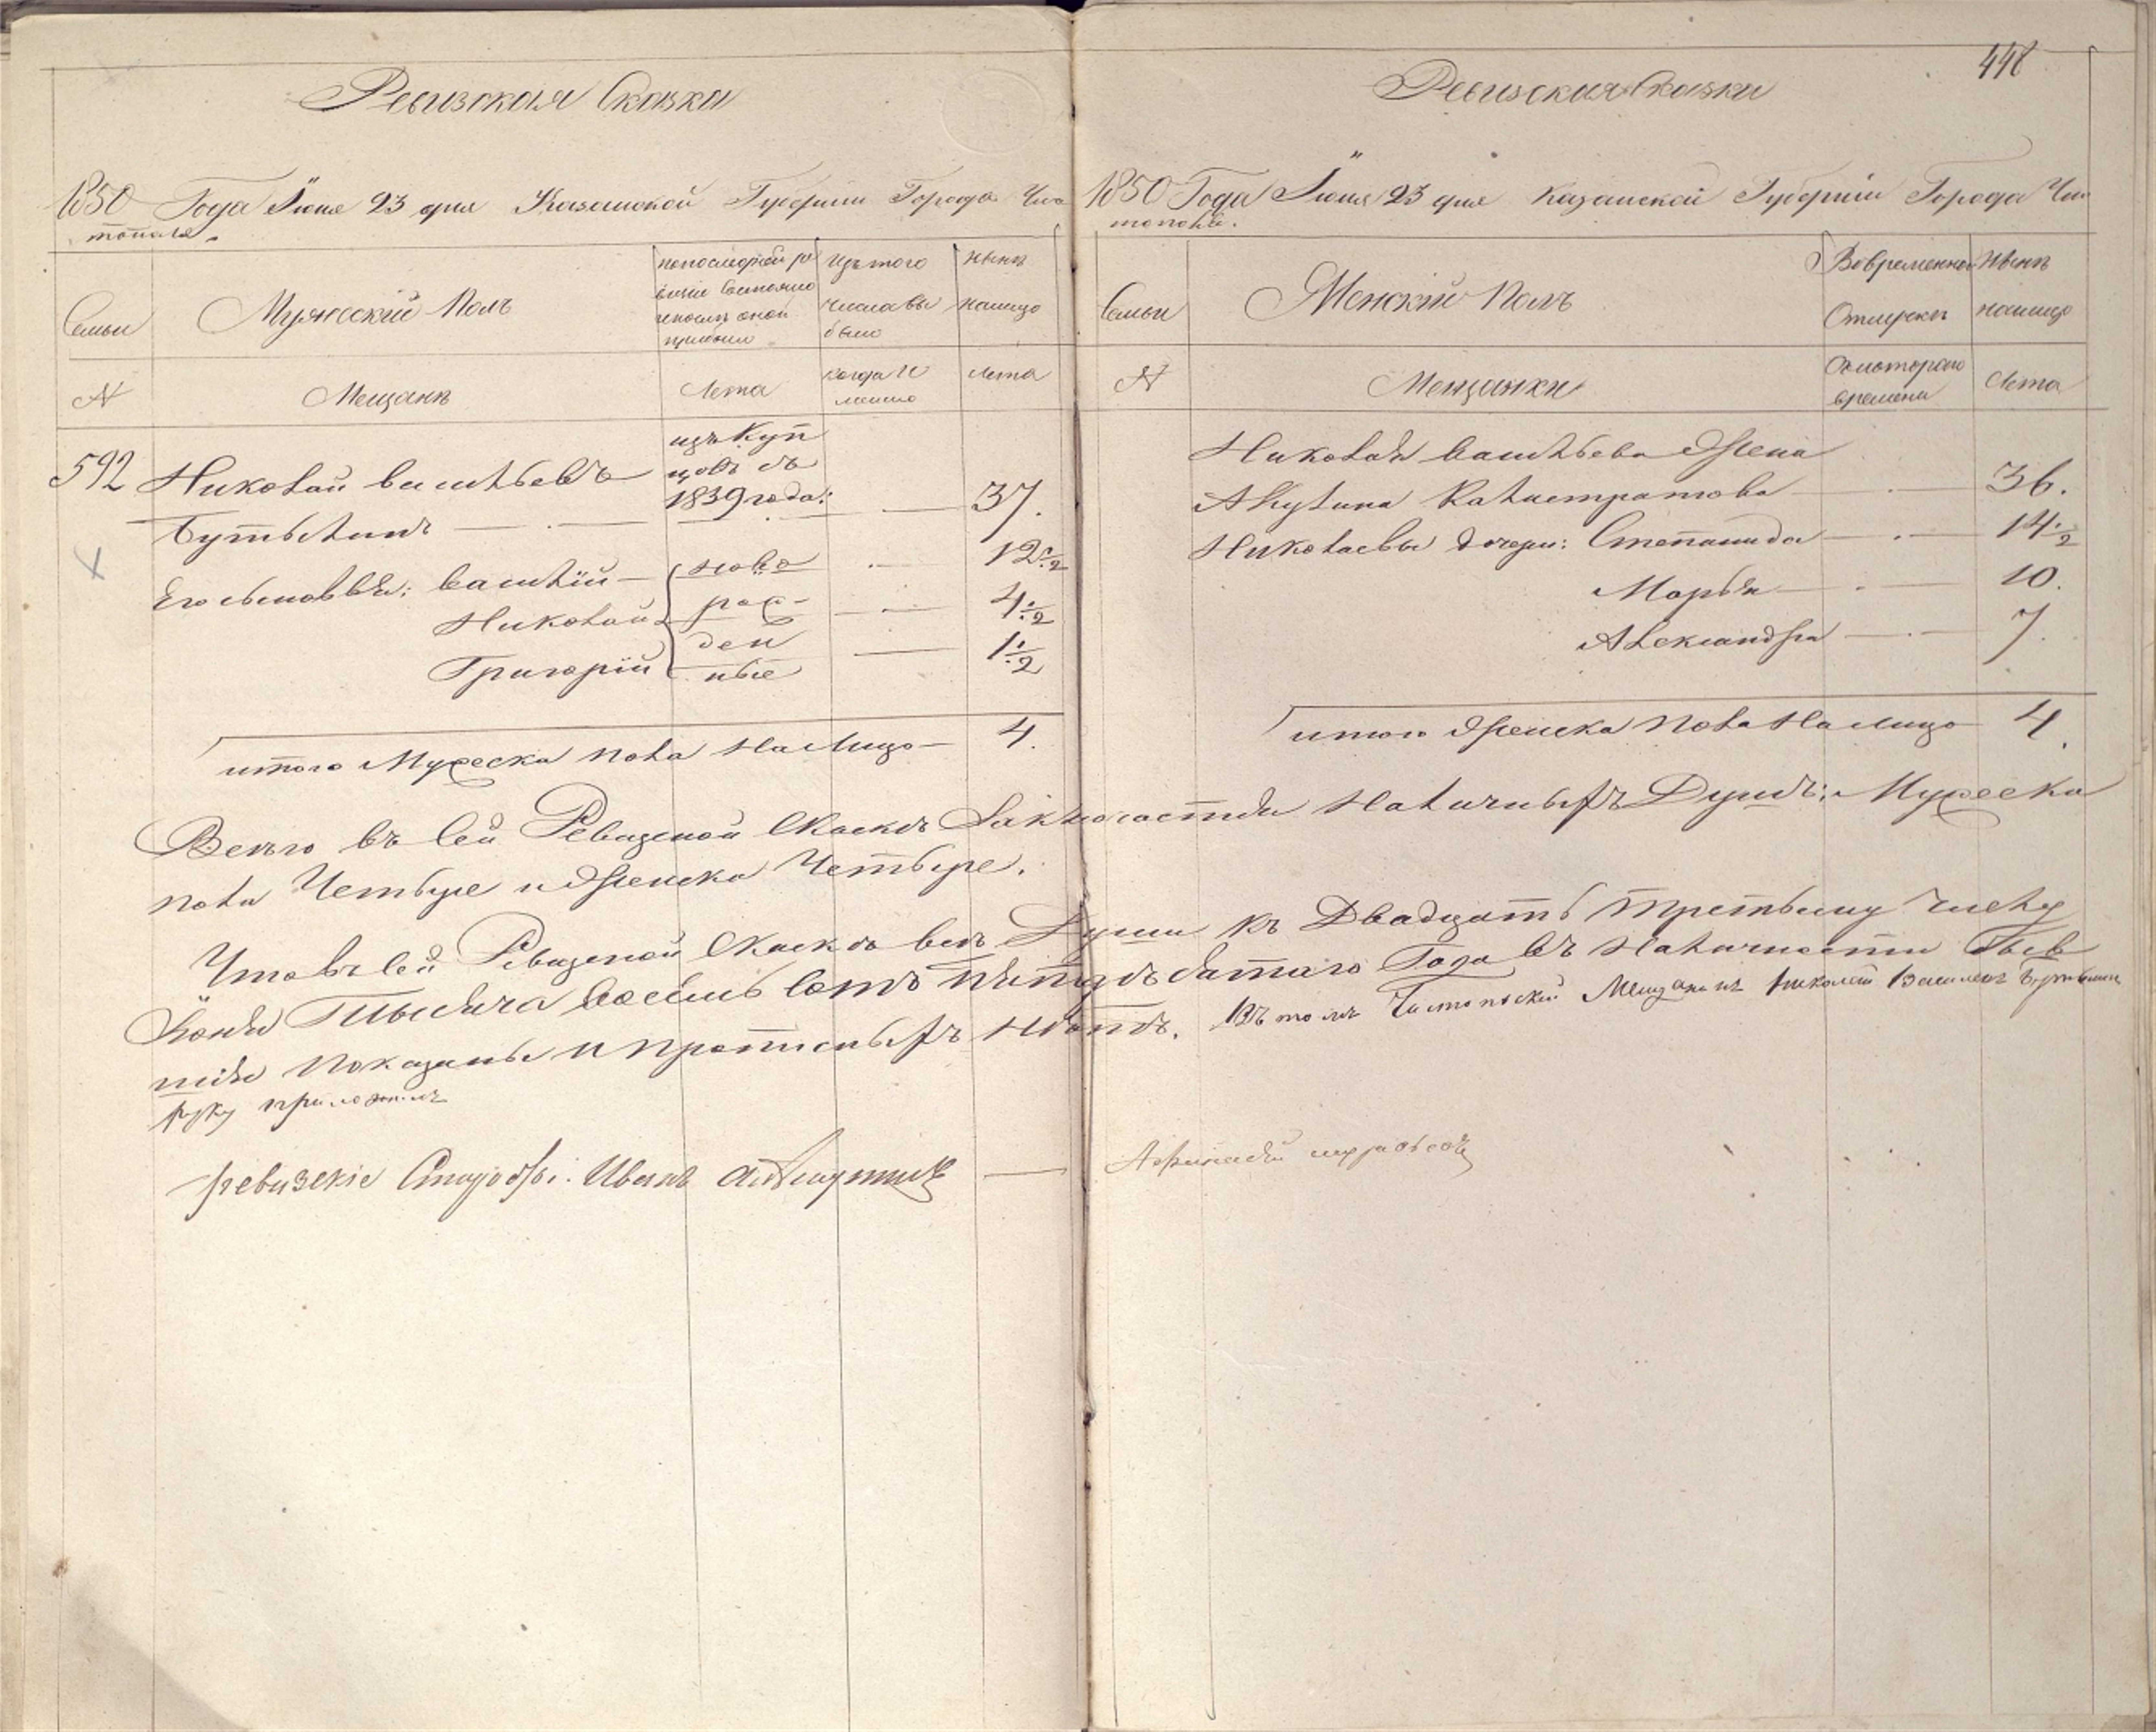 Ревизская Сказка
1850 Года Июня 23 дня Казанской Губернии Города Чис
тополя.
Семьи
Мужеский Полъ
попоследней ре
визіи Состояло
ипослѣ оной
прибыло
Изътого
числа вы
было
Нынѣ
налицо
№
Мещанѣ
Лета
когда И
Лета
592 Николай Васильевъ
изъ Куп
цовъ съ
1839 года:
37.
Бутылинъ
Его сыновья: Василій
ново
12 1/2
Николай
рож-
4 1/2
ден
Григорій
ные
1 1/2
итого Мужеска пола На Лицо 4.
448
Ревизская Сказка
1850 Года Июня 23 дня Казанской Губерніи Города Чис
тополя.
Семьи
Женскій Полъ
Вовременной
Отлучкѣ
Нынѣ
налицо
№
Мещанки
Скотораго
времени
Лета
Николая Васильева Жена
Акулина Калистратова 36.
Николаевы дочери: Степанида 14 1/2
Марья 10.
Александра 7.
итого Женска Пола На лицо 4.
Всего въ Сей Ревизской Скаскѣ Заключается Наличныхъ Душъ: Мужеска
пола Четыре и Женска Четыре.
Что въ сей Ревизской Скаскѣ всѣ Души къ Двадцать третьему числу
Іюня Тысяча Восемь Сотъ Пятьдѣсятаго Года въ Наличности Быв
шія Показаны И прописныхъ Нѣтъ. Въ томъ Чистопольскій Мещанинъ Николай Васильевъ Бутылинъ
руку приложилъ
ревизскіе Старосты: Иванъ